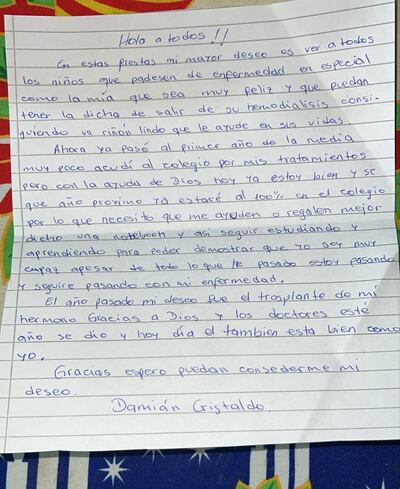 Hola a todos !!
En estas fiestas mi mayor deseo es ver a todos
los niños que padesen de enfermedad en especial
como la mía que sea muy feliz y que puedan
tener la dicha de salir de su hemodialisis consi-
guiendo un riñón lindo que le ayude en sus vidas.
Ahora ya pasé al primer año de la media
muy poco acudí al colegio por mis tratamientos
pero con la ayuda de Dios hoy ya estoy bien y se
que año proximo ya estaré al 100% en el colegio
por lo que necesito que me ayuden o regalen mejor
dicho una notebooh y asi seguir estudiando y
aprendiendo para poder demostrar que yo soy muy
capaz apesar de todo lo que he pasado estoy pasando
y seguire pasando con mi enfermedad.
El año pasado mi deseo fue el trasplante de mi
hermano Gracias a Dios y los doctores esté
año se dio y hoy día el tambien esta bien como
yo.
Gracias espero puedan consederme mi
deseo.
Damián Cristaldo.